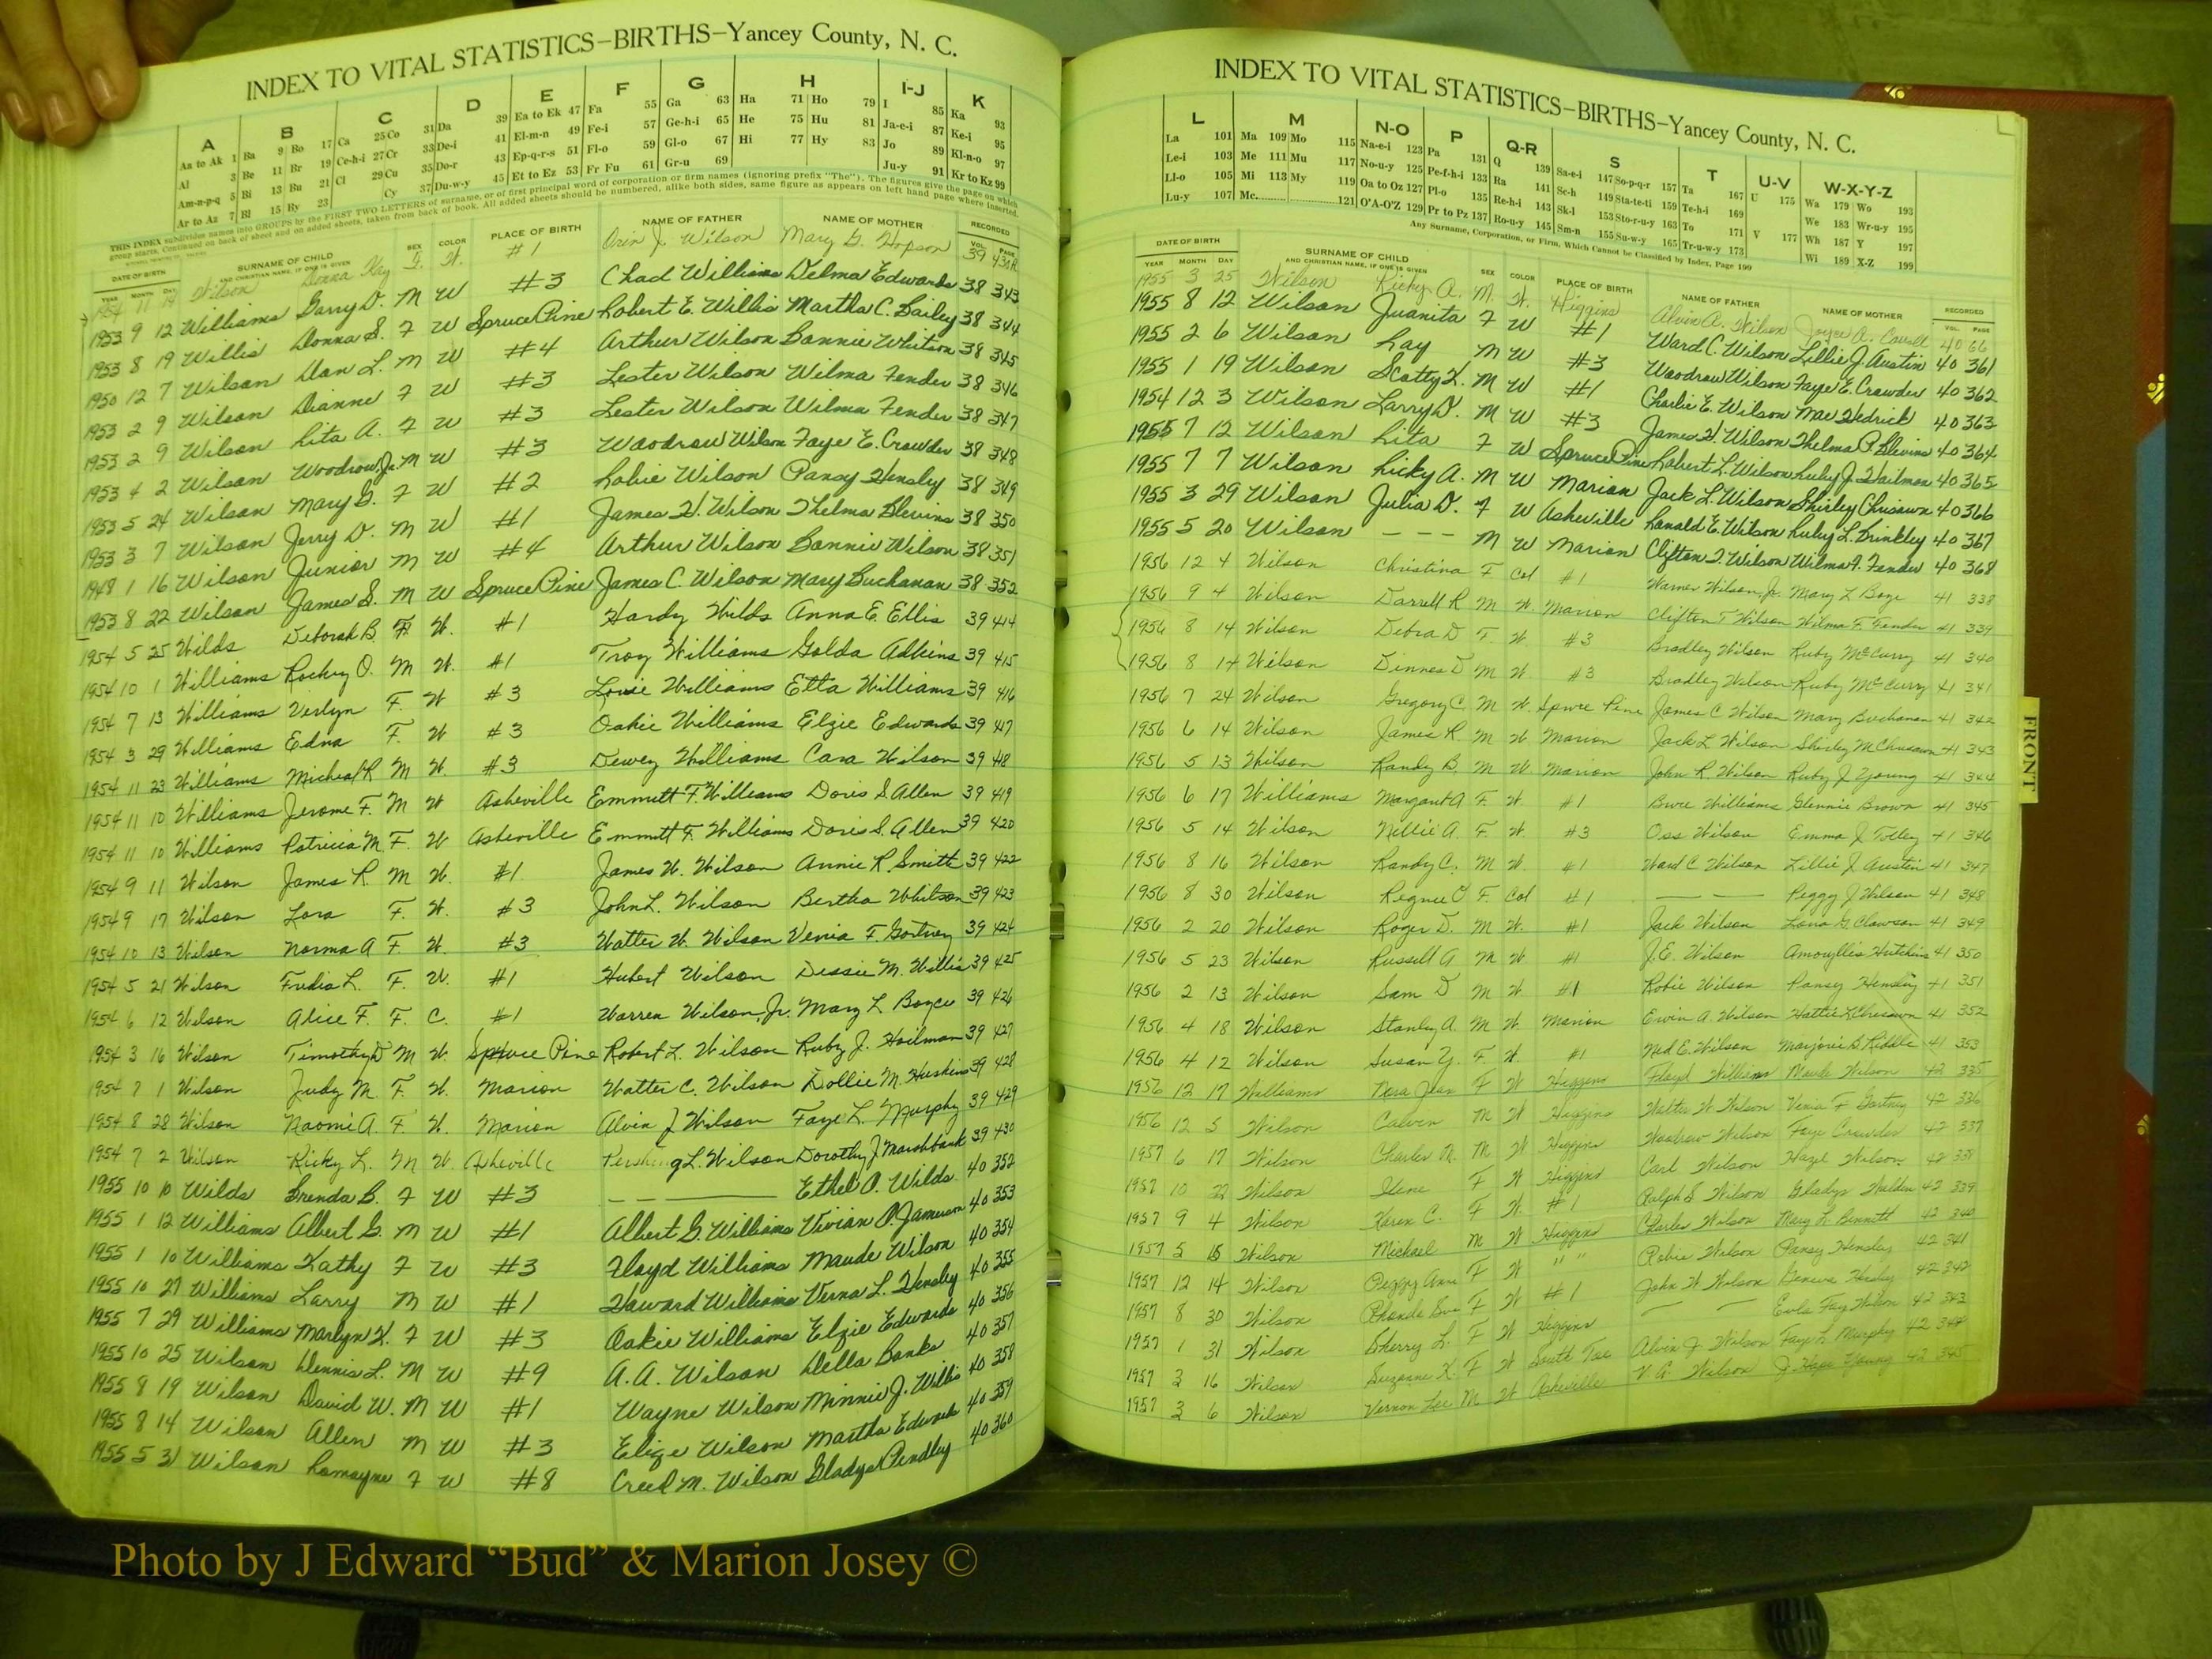 INDEX TO VITAL STATISTICS—BIRTHS—Yancey County, N. C.
A B C D E F G H I-J K
Aa to Ak 1 Ba 9 Bo 17 Ca 25 Co 31 Da 39 Ea to Ek 47 Fa 55 Ga 63 Ha 71 Ho 79 I 85 Ka 93
Al 3 Be 11 Br 19 Ce-h-i 27 Cr 33 De-i 41 El-m-n 49 Fe-i 57 Ge-h-i 65 He 75 Hu 81 Ja-e-i 87 Ke-i 95
Am-n-p-q 5 Bi 13 Bu 21 Cl 29 Cu 35 Do-r 43 Ep-q-r-s 51 Fl-o 59 Gl-o 67 Hi 77 Hy 83 Jo 89 Kl-n-o 97
Ar to Az 7 Bl 15 By 23 Cy 37 Du-w-y 45 Et to Ez 53 Fr Fu 61 Gr-u 69 Ju-y 91 Kr to Kz 99
THIS INDEX subdivides names into GROUPS by the FIRST TWO LETTERS of surname, or of first principal word of corporation or firm names (ignoring prefix "The"). The figures give the page on which
group starts. Continued on back of sheet and on added sheets, taken from back of book. All added sheets should be numbered, alike both sides, same figure as appears on left hand page where inserted.
DATE OF BIRTH SURNAME OF CHILD SEX COLOR PLACE OF BIRTH NAME OF FATHER NAME OF MOTHER RECORDED
YEAR MONTH DAY AND CHRISTIAN NAME, IF ONE IS GIVEN VOL. PAGE
1954 11 19 Wilson Donna Kay F. W. #1 Orin J. Wilson Mary G. Hopson 39
1953 9 12 Williams Garry D. M W #3 Chad Williams Delma Edwards 38 343
1953 8 19 Willis Donna S. F W Spruce Pine Robert E. Willis Martha C. Bailey 38 344
1950 12 7 Wilson Dan L. M W #4 Arthur Wilson Bonnie Whitson 38 345
1953 2 9 Wilson Dianne F W #3 Lester Wilson Wilma Fender 38 346
1953 2 9 Wilson Rita A. F W #3 Lester Wilson Wilma Fender 38 347
1953 4 2 Wilson Woodrow, Jr. M W #3 Woodrow Wilson Faye E. Crowder 38 348
1953 5 24 Wilson Mary G. F W #2 Robie Wilson Pansy Hensley 38 349
1953 3 7 Wilson Jerry D. M W #1 James H. Wilson Thelma Blevins 38 350
1948 1 16 Wilson Junior M W #4 Arthur Wilson Bonnie Wilson 38 351
1953 8 22 Wilson James S. M W Spruce Pine James C. Wilson Mary Buchanan 38 352
1954 5 25 Wilds Deborah B. F. W. #1 Hardy Wilds Anna E. Ellis 39 414
1954 10 1 Williams Rocky O. M W. #1 Troy Williams Golda Adkins 39 415
1954 7 13 Williams Verlyn F. W #3 Louie Williams Etta Williams 39 416
1954 3 29 Williams Edna F. W #3 Oakie Williams Elzie Edwards 39 417
1954 11 23 Williams Micheal R M W. #3 Dewey Williams Cara Wilson 39 418
1954 11 10 Williams Jerome F. M W Asheville Emmitt F. Williams Doris S. Allen 39 419
1954 11 10 Williams Patricia M. F. W Asheville Emmitt F. Williams Doris S. Allen 39 420
1954 9 11 Wilson James R. M W. #1 James W. Wilson Annie R. Smith 39 422
1954 9 17 Wilson Lora F. W. #3 John L. Wilson Bertha Whitson 39 423
1954 10 13 Wilson Norma A F. W. #3 Walter W. Wilson Venia F. Gortney 39 424
1954 5 21 Wilson Fredia L. F. W. #1 Hubert Wilson Dessie M. Willis 39 425
1954 6 12 Wilson Alice F. F. C. #1 Warren Wilson, Jr. Mary L Boyce 39 426
1954 3 16 Wilson Timothy D M W. Spruce Pine Robert L. Wilson Ruby J. Hoilman 39 427
1954 7 1 Wilson Judy M. F. W. Marion Walter C. Wilson Dollie M. Huskins 39 428
1954 8 28 Wilson Naomi A. F. W. Marion Alvin J Wilson Faye L. Murphy 39 429
1954 7 2 Wilson Ricky L. M W. Asheville Pershing L. Wilson Dorothy J Marshbank 39 430
1955 10 10 Wilds Brenda B. F W #3 — — — Ethel A. Wilds 40 352
1955 1 12 Williams Albert G. M W #1 Albert G. Williams Vivian P. Jameson 40 353
1955 1 10 Williams Kathy F W #3 Floyd Williams Maude Wilson 40 354
1955 10 27 Williams Larry M W #1 Howard Williams Verna L. Hensley 40 355
1955 7 29 Williams Marlyn K. F W #3 Oakie Williams Elzie Edwards 40 356
1955 10 25 Wilson Dennis L. M W #9 A.A. Wilson Della Banks 40 357
1955 8 19 Wilson David W. M W #1 Wayne Wilson Minnie J. Willis 40 358
1955 8 14 Wilson Allen M W #3 Elize Wilson Martha Edwards 40 359
1955 5 31 Wilson Romayne F W #8 Creed M. Wilson Gladys Pendley 40 360
INDEX TO VITAL STATISTICS—BIRTHS—Yancey County, N. C.
L M N-O P Q-R S T U-V W-X-Y-Z
La 101 Ma 109 Mo 115 Na-e-i 123 Pa 131 Q 139 Sa-e-i 147 So-p-q-r 157 Ta 167 U 175 Wa 179 Wo 193
Le-i 103 Me 111 Mu 117 No-u-y 125 Pe-f-h-i 133 Ra 141 Sc-h 149 Sta-te-ti 159 Te-h-i 169 We 183 Wr-u-y 195
Ll-o 105 Mi 113 My 119 Oa to Oz 127 Pl-o 135 Re-h-i 143 Sk-l 153 Sto-r-u-y 163 To 171 V 177 Wh 187 Y 197
Lu-y 107 Mc 121 O'A-O'Z 129 Pr to Pz 137 Ro-u-y 145 Sm-n 155 Su-w-y 165 Tr-u-w-y 173 Wi 189 X-Z 199
Any Surname, Corporation, or Firm, Which Cannot be Classified by Index, Page 199
DATE OF BIRTH SURNAME OF CHILD SEX COLOR PLACE OF BIRTH NAME OF FATHER NAME OF MOTHER RECORDED
YEAR MONTH DAY AND CHRISTIAN NAME, IF ONE IS GIVEN VOL. PAGE
1955 3 25 Wilson Ricky A. M. W. Higgins Alvin A. Wilson Joyce A. 40 66
1955 8 12 Wilson Juanita F W #1 Ward C. Wilson Lillie J. Austin 40 361
1955 2 6 Wilson Ray M W #3 Woodrow Wilson Faye E. Crowder 40 362
1955 1 19 Wilson Scotty K. M W #1 Charlie E. Wilson Mae Hedrick 40 363
1954 12 3 Wilson Larry D. M W #3 James H. Wilson Thelma P. Blevins 40 364
1955 7 12 Wilson Rita F W Spruce Pine Robert L. Wilson Ruby J. Hailman 40 365
1955 7 7 Wilson Ricky A. M W Marion Jack L. Wilson Shirley Chrisawn 40 366
1955 3 29 Wilson Julia D. F W Asheville Ronald E. Wilson Ruby L. Brinkley 40 367
1955 5 20 Wilson – – – M W Marion Clifton T. Wilson Wilma F. Fender 40 368
1956 12 4 Wilson Christina F Col #1 Warner Wilson, Jr. Mary L Boye 41 338
1956 9 4 Wilson Darrell R M W. Marion Clifton T Wilson Wilma F. Fender 41 339
1956 8 14 Wilson Debra D F. W. #3 Bradley Wilson Ruby McCurry 41 340
1956 8 14 Wilson Dinnes D M W. #3 Bradley Wilson Ruby McCurry 41 341
1956 7 24 Wilson Gregory C. M W. Spruce Pine James C Wilson Mary Buchanan 41 342
1956 6 14 Wilson James R M W Marion Jack L Wilson Shirley McChrisawn 41 343
1956 5 13 Wilson Randy B. M W. Marion John R. Wilson Ruby J Young 41 344
1956 6 17 Williams Margaret A F. W. #1 Williams Glennie Brown 41 345
1956 5 14 Wilson Nellie A. F. W. #3 Oss Wilson Emma J Tolley 41 346
1956 8 16 Wilson Randy C. M W. #1 Ward C Wilson Lillie J Austin 41 347
1956 8 30 Wilson O F. Col #1 — — Peggy J Wilson 41 348
1956 2 20 Wilson Roger D. M W. #1 Jack Wilson Lona G. Clawson 41 349
1956 5 23 Wilson Russell A. M W #1 J.E. Wilson Amoryllis Hutchins 41 350
1956 2 13 Wilson Sam D M W #1 Robie Wilson Pansy Hensley 41 351
1956 4 18 Wilson Stanley A. M W. Marion Ervin A. Wilson Hattie L Chrisawn 41 352
1956 4 12 Wilson Susan Y. F W. #1 Ned E. Wilson Marjorie B Riddle 41 353
1956 12 17 Williams Jean F W Higgins Floyd Williams Maude Wilson 42 335
1956 12 5 Wilson Calvin M W Higgins Walter W Wilson Venia F Gortney 42 336
1957 6 17 Wilson Charles M. M W Higgins Woodrow Wilson Faye Crowder 42 337
1957 10 22 Wilson Ilene F W Higgins Carl Wilson Hazel Wilson 42 338
1957 9 4 Wilson Karen C. F W #1 Ralph S Wilson Gladys 42 339
1957 5 15 Wilson Michael M W Higgins Charles Wilson Mary L. Bennett 42 340
1957 12 14 Wilson Peggy Ann F W " Robie Wilson Pansy Hensley 42 341
1957 8 30 Wilson Rhonda Sue F W #1 John W Wilson Geneva 42 342
1957 1 31 Wilson Sherry L. F W Higgins — — Eula Fay Wilson 42 343
1957 3 16 Wilson Suzanne K. F W South Toe Alvin J. Wilson Faye L Murphy 42 344
1957 3 6 Wilson Vernon Lee M W Asheville V G. Wilson J. Young 42 345
FRONT
Photo by J Edward “Bud” & Marion Josey ©